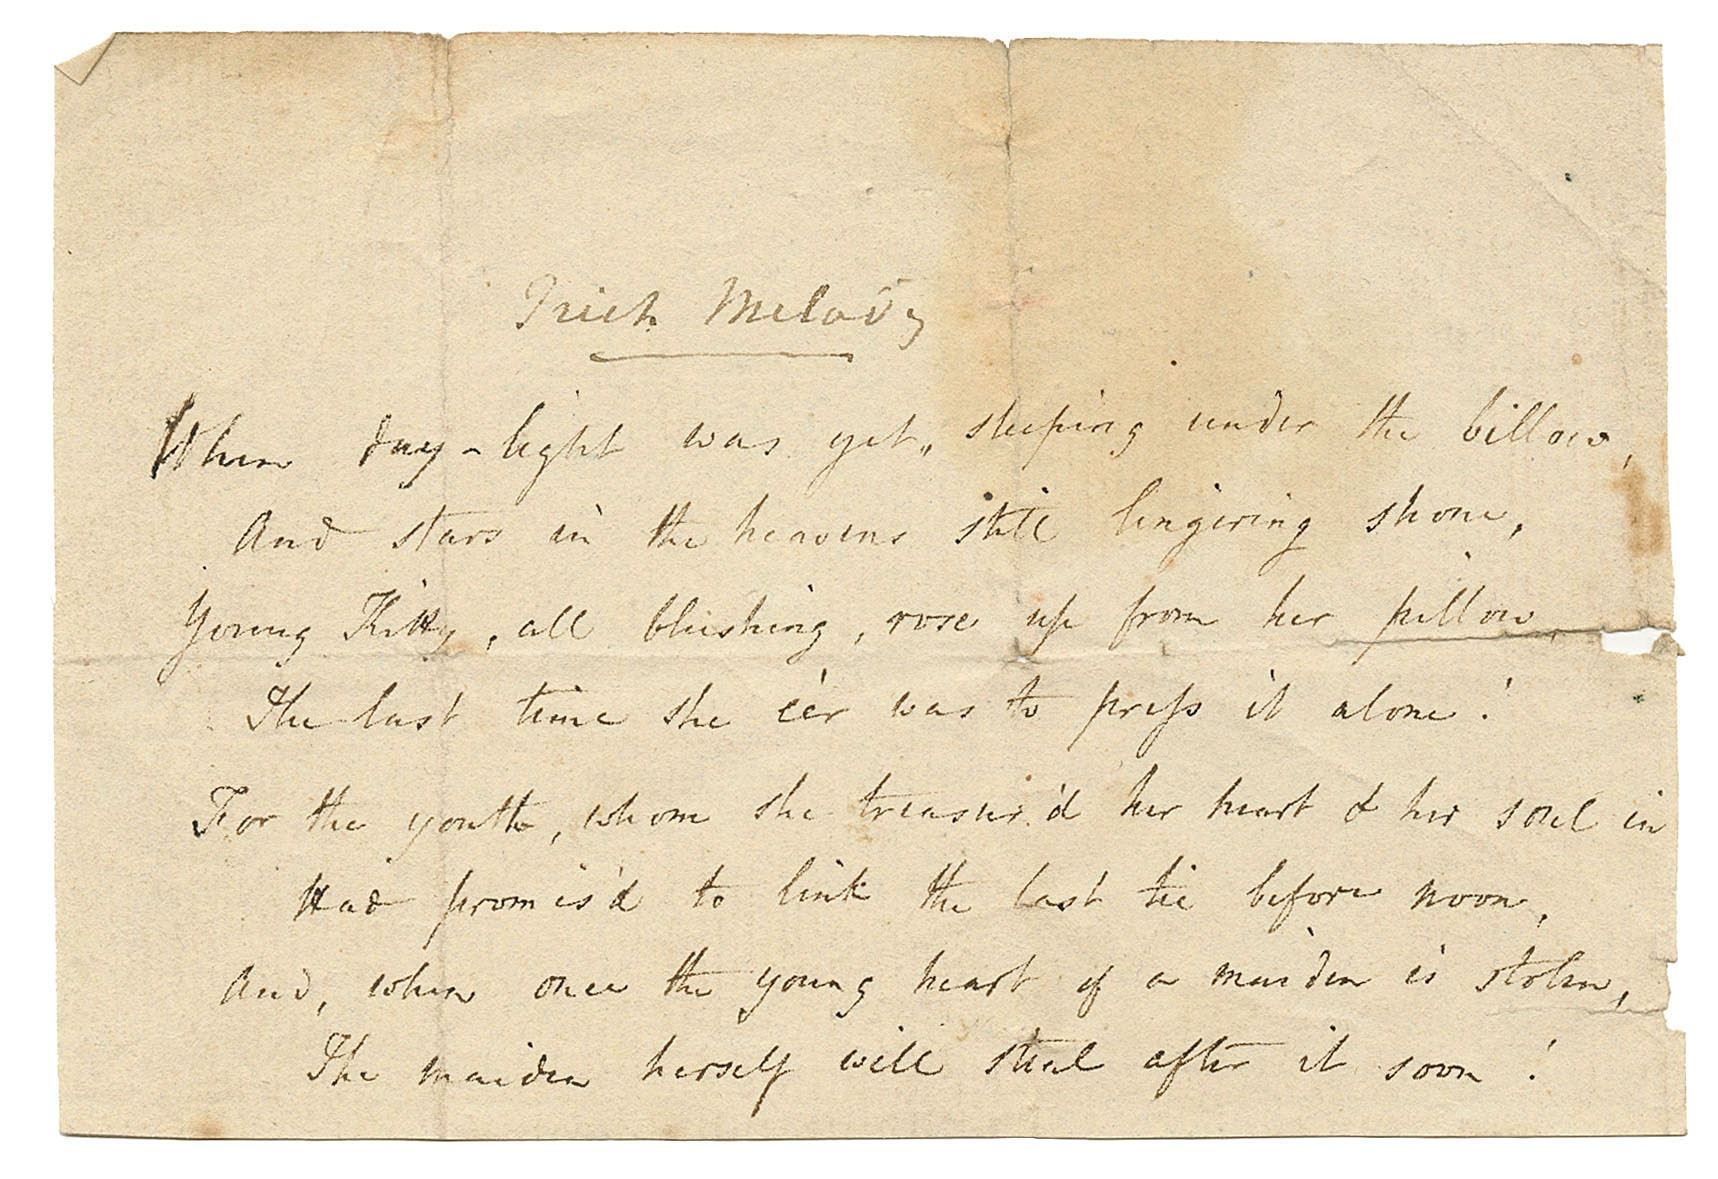 Irish Melody
When day-light was yet sleeping under the billow,
And stars in the heavens still lingering shone,
Young Kitty, all blushing, rose up from her pillow,
The last time she e'er was to press it alone!
For the youth, whom she treasur'd her heart & her soul in
Had promis'd to link the last tie before noon,
And, when once the young heart of a maiden is stolen,
The maiden herself will steal after it soon!